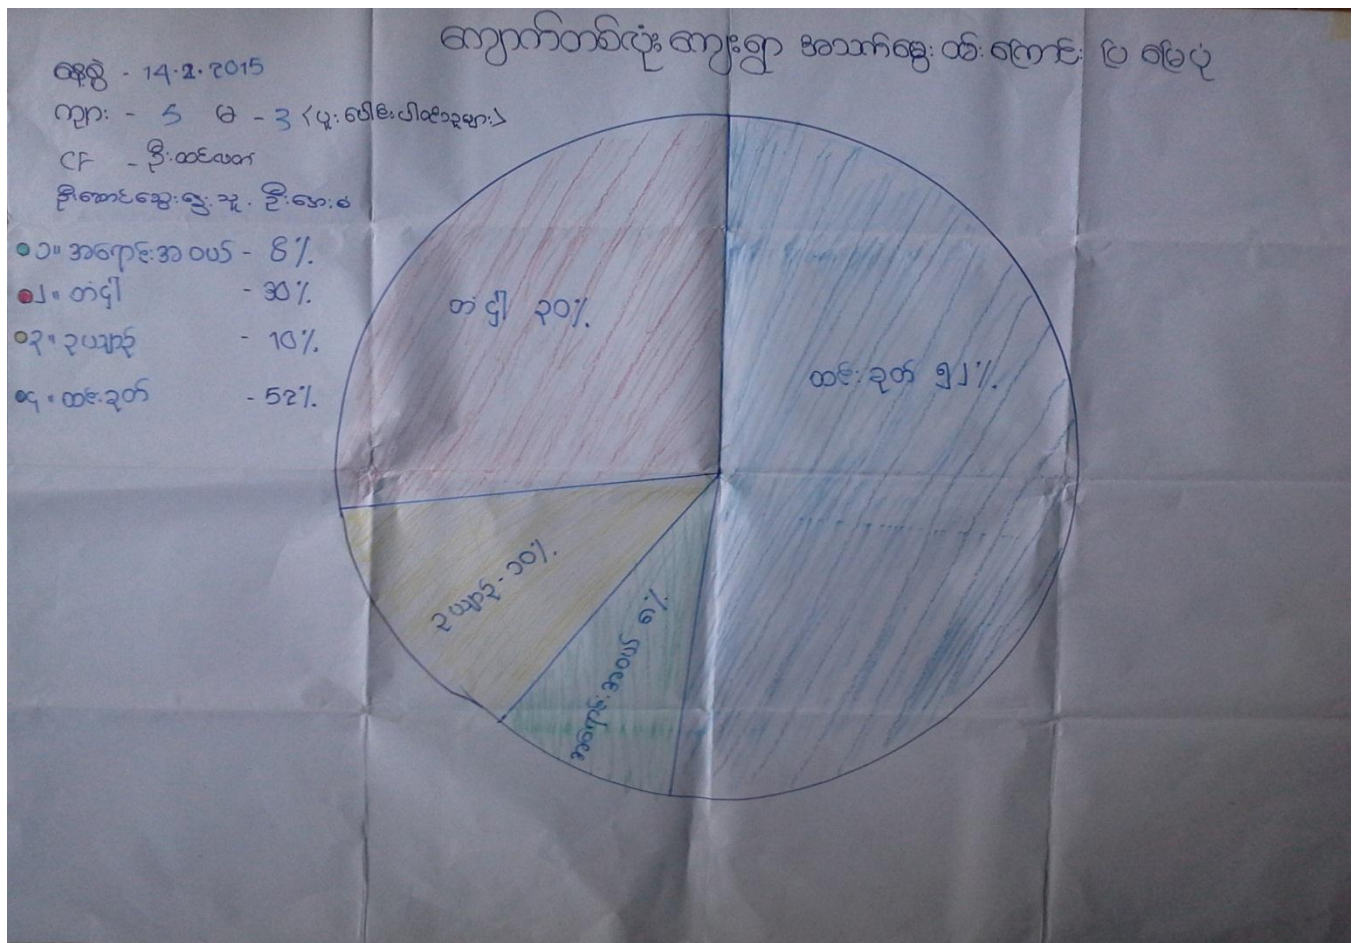 ကျောက်တစ်လုံး ကျေးရွာ အသက်မွေး ဝမ်းကြောင်း ပြ မြေပုံ
နေ့စွဲ - 14.2.2015
ကျား - 5 မ - 3 (ပူးပေါင်းပါဝင်သူများ)
CF - ဦး
ဦးဆောင်ဆွေးနွေးသူ - ဦး
၁။ အရောင်းအဝယ် - 8%
၂။ တံငါ - 30%
၃။ ဥယျာဉ် - 10%
၄။ ထင်းခုတ် - 52%
တံငါ ၃၀%
ထင်းခုတ် ၅၂%
ဥယျာဉ် - ၁၀%
အရောင်းအဝယ် ၈%